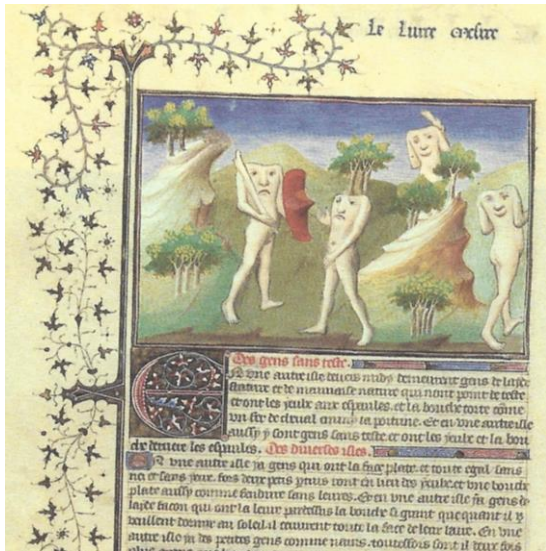 Le Livre
Des gens sans teste.
En une autre isle devers midy demeurent gens de laide
stature et de mauvaise nature qui nont point de teste
et ont les yeulx aux espaules. et la bouche torte come
un fer de cheval emmy la poitrine. Et en une autre isle
aussy y sont gens sans teste et ont les yeulx et la bou
che derriere les espaules. Des diverses isles.
En une autre isle ya gens qui ont la face plate et toute egal sans
nez et sans yeux fors deux petis ptruis ront en lieu des yeulx. et une bouche
plate aussy comme fendure sans levres. Et en une autre isle sa gens de
laide facon qui ont la levre pardessus la bouche si grant que quant il y
veullent dormir au soleil il couvrent toute la face de leur levre. En une
autre isle ja des petites gens comme nains. toutesfois sont il deux fois